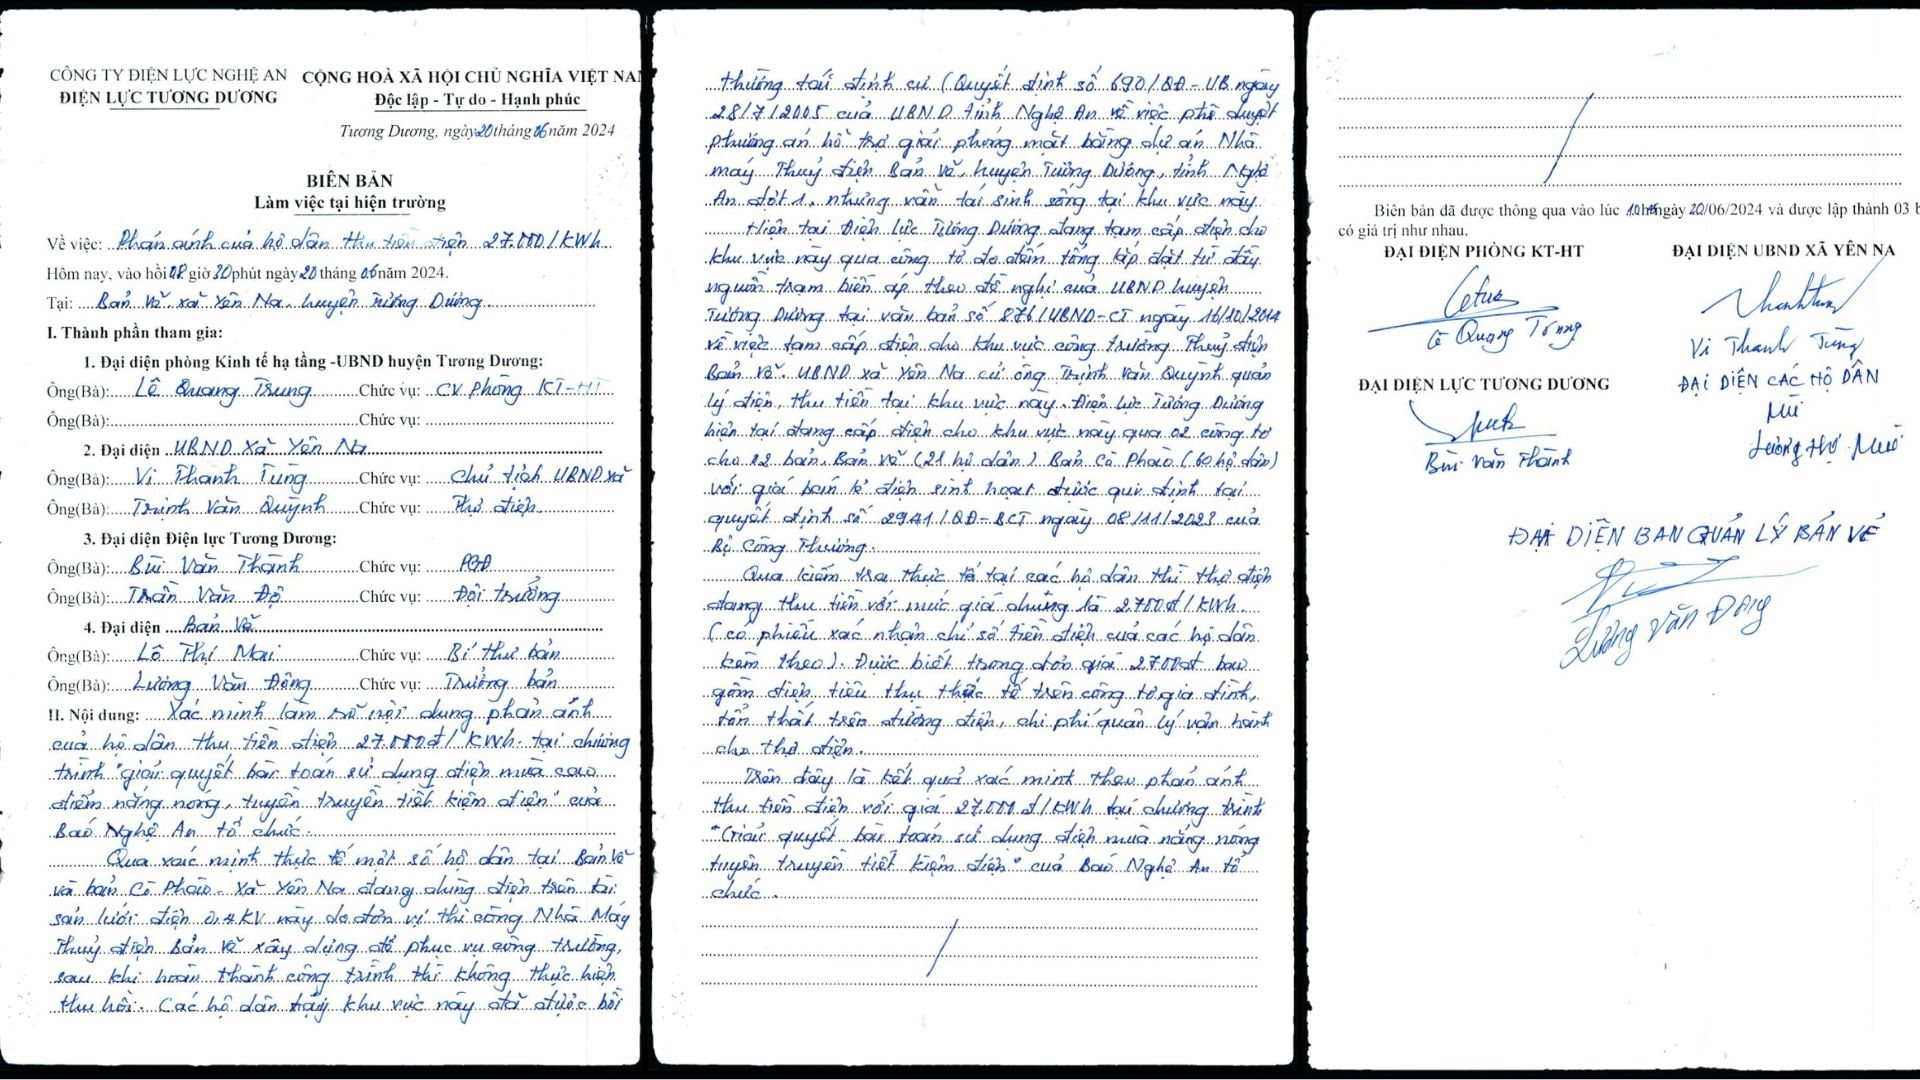 CÔNG TY ĐIỆN LỰC NGHỆ AN
ĐIỆN LỰC TƯƠNG DƯƠNG
CỘNG HOÀ XÃ HỘI CHỦ NGHĨA VIỆT NAM
Độc lập - Tự do - Hạnh phúc
Tương Dương, ngày 20 tháng 06 năm 2024
BIÊN BẢN
Làm việc tại hiện trường
Về việc: Phản ánh của hộ dân thu tiền điện 27.000/KWh
Hôm nay, vào hồi 08 giờ 30 phút ngày 20 tháng 06 năm 2024.
Tại: Bản Vẽ xã Yên Na, huyện Tương Dương
I. Thành phần tham gia:
1. Đại diện phòng Kinh tế hạ tầng -UBND huyện Tương Dương:
Ông(Bà): Lê Quang Trung Chức vụ: CV Phòng KT-HT
Ông(Bà): Chức vụ:
2. Đại diện UBND Xã Yên Na
Ông(Bà): Vi Thanh Tùng Chức vụ: Chủ tịch UBND xã
Ông(Bà): Trịnh Văn Quỳnh Chức vụ: Thợ điện.
3. Đại diện Điện lực Tương Dương:
Ông(Bà): Bùi Văn Thành Chức vụ: PGĐ
Ông(Bà): Trần Văn Độ Chức vụ: Đội trưởng
4. Đại diện Bản Vẽ
Ông(Bà): Lô Thị Mai Chức vụ: Bí thư bản
Ông(Bà): Lương Văn Động Chức vụ: Trưởng bản
II. Nội dung: Xác minh làm rõ nội dung phản ánh
của hộ dân thu tiền điện 27.000đ/KWh tại chương
trình "giải quyết bài toán sử dụng điện mùa cao
điểm nắng nóng, tuyên truyền tiết kiệm điện" của
Báo Nghệ An tổ chức.
Qua xác minh thực tế một số hộ dân tại Bản Vẽ
và bản Cò Phảo - Xã Yên Na đang dùng điện trên tài
sản lưới điện 0,4KV này do đơn vị thi công Nhà Máy
Thuỷ điện Bản Vẽ xây dựng để phục vụ công trường,
sau khi hoàn thành công trình thì không thực hiện
thu hồi. Các hộ dân tại khu vực này đã được bồi
thường tái định cư (Quyết định số 690/QĐ-UB ngày
28/7/2005 của UBND tỉnh Nghệ An về việc phê duyệt
phương án hỗ trợ giải phóng mặt bằng dự án Nhà
máy Thuỷ điện Bản Vẽ, huyện Tương Dương, tỉnh Nghệ
An đợt 1, nhưng vẫn tái sinh sống tại khu vực này
Hiện tại Điện lực Tương Dương đang tạm cấp điện cho
khu vực này qua công tơ đo đếm tổng lắp đặt từ đầu
nguồn trạm biến áp theo đề nghị của UBND huyện
Tương Dương tại văn bản số 876/UBND-CT ngày 16/10/2014
về việc tạm cấp điện cho khu vực công trường Thuỷ điện
Bản Vẽ. UBND xã Yên Na cử ông Trịnh Văn Quỳnh quản
lý điện, thu tiền tại khu vực này. Điện lực Tương Dương
hiện tại đang cấp điện cho khu vực này qua 02 công tơ
cho 02 bản, Bản Vẽ (21 hộ dân). Bản Cò Phảo (60 hộ dân)
với giá bán lẻ điện sinh hoạt được qui định tại
quyết định số 2941/QĐ-BCT ngày 08/11/2023 của
Bộ Công Thương.
Qua kiểm tra thực tế tại các hộ dân thì thợ điện
đang thu tiền với mức giá chung là 2.700đ/KWh.
(có phiếu xác nhận chỉ số tiền điện của các hộ dân
kèm theo). Được biết trong đơn giá 2.700đ bao
gồm điện tiêu thụ thực tế trên công tơ gia đình,
tổn thất trên đường điện, chi phí quản lý vận hành
cho thợ điện.
Trên đây là kết quả xác minh theo phản ánh
thu tiền điện với giá 27.000đ/KWh tại chương trình
"Giải quyết bài toán sử dụng điện mùa nắng nóng
tuyên truyền tiết kiệm điện" của Báo Nghệ An tổ
chức.
Biên bản đã được thông qua vào lúc ngày 20/06/2024 và được lập thành 03 b
có giá trị như nhau.
ĐẠI DIỆN PHÒNG KT-HT
ĐẠI DIỆN UBND XÃ YÊN NA
Lê Quang Trung
Vi Thanh Tùng
ĐẠI DIỆN LỰC TƯƠNG DƯƠNG
ĐẠI DIỆN CÁC HỘ DÂN
Bùi Văn Thành
Lương Thị
ĐẠI DIỆN BAN QUẢN LÝ BẢN VẼ
Lương Văn Động